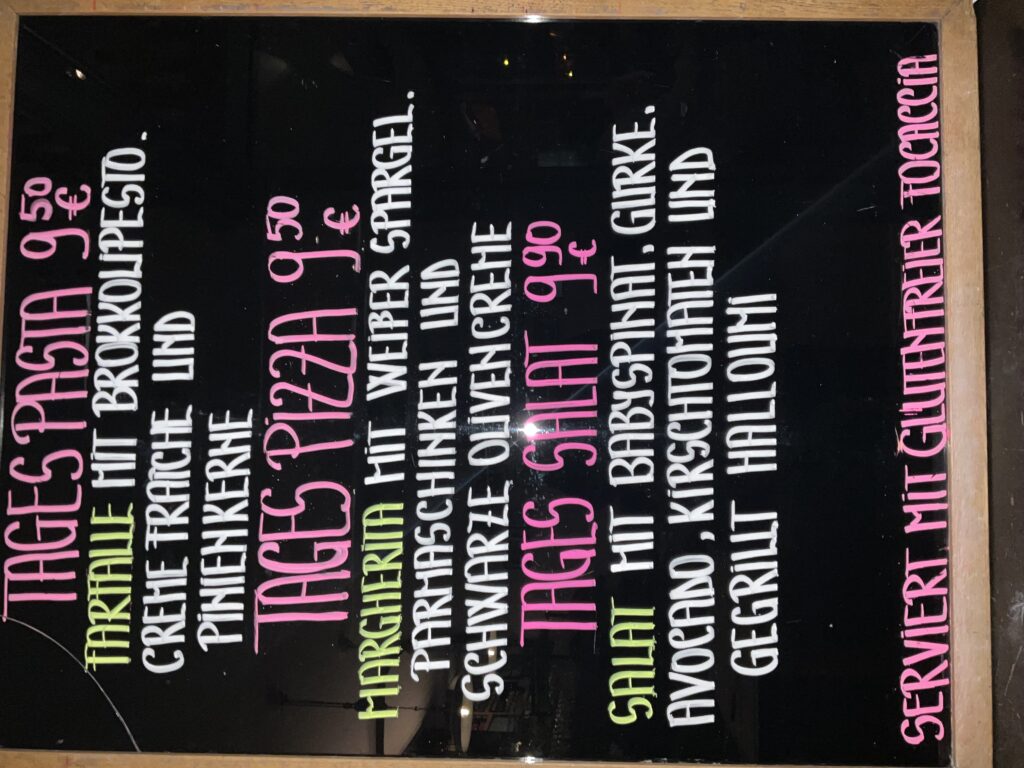 TAGES PASTA 9 50 €
FARFALLE MIT BROKKOLIPESTO.
CREME FRAICHE UND
PINIENKERNE
TAGES PIZZA 9 50 €
MARGHERITA MIT WEIßER SPARGEL.
PARMASCHINKEN UND
SCHWARZE OLIVENCREME
TAGES SALAT 9 90 €
SALAT MIT BABYSPINAT, GURKE,
AVOCADO, KIRSCHTOMATEN UND
GEGRILLT HALLOUMI
SERVIERT MIT GLUTENFREIER FOCACCIA